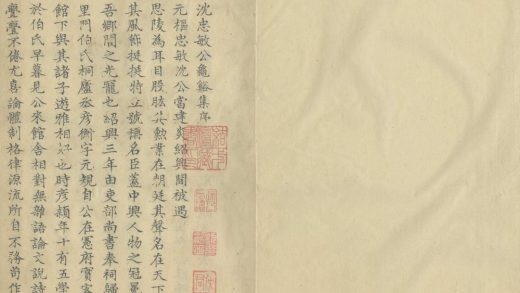 沈忠敏公龜谿集序
元樞忠敏沈公當建炎紹興間被遇
思陵為耳目股肱其勳業在朝廷其聲名在天下
其風節挺挺特立號稱名臣蓋中興人物之冠冕
吾鄉閭之光寵也紹興三年由吏部尚書奉祠歸
里門伯氏桐廬丞彥衡字元規自公在憲府實客
館下與其諸子遊雅相好也時彥穎年十有五學
於伯氏早暮見公來館舍相對無雜語論文說詩
亹亹不倦尤喜論體制格律源流所自不務苟作